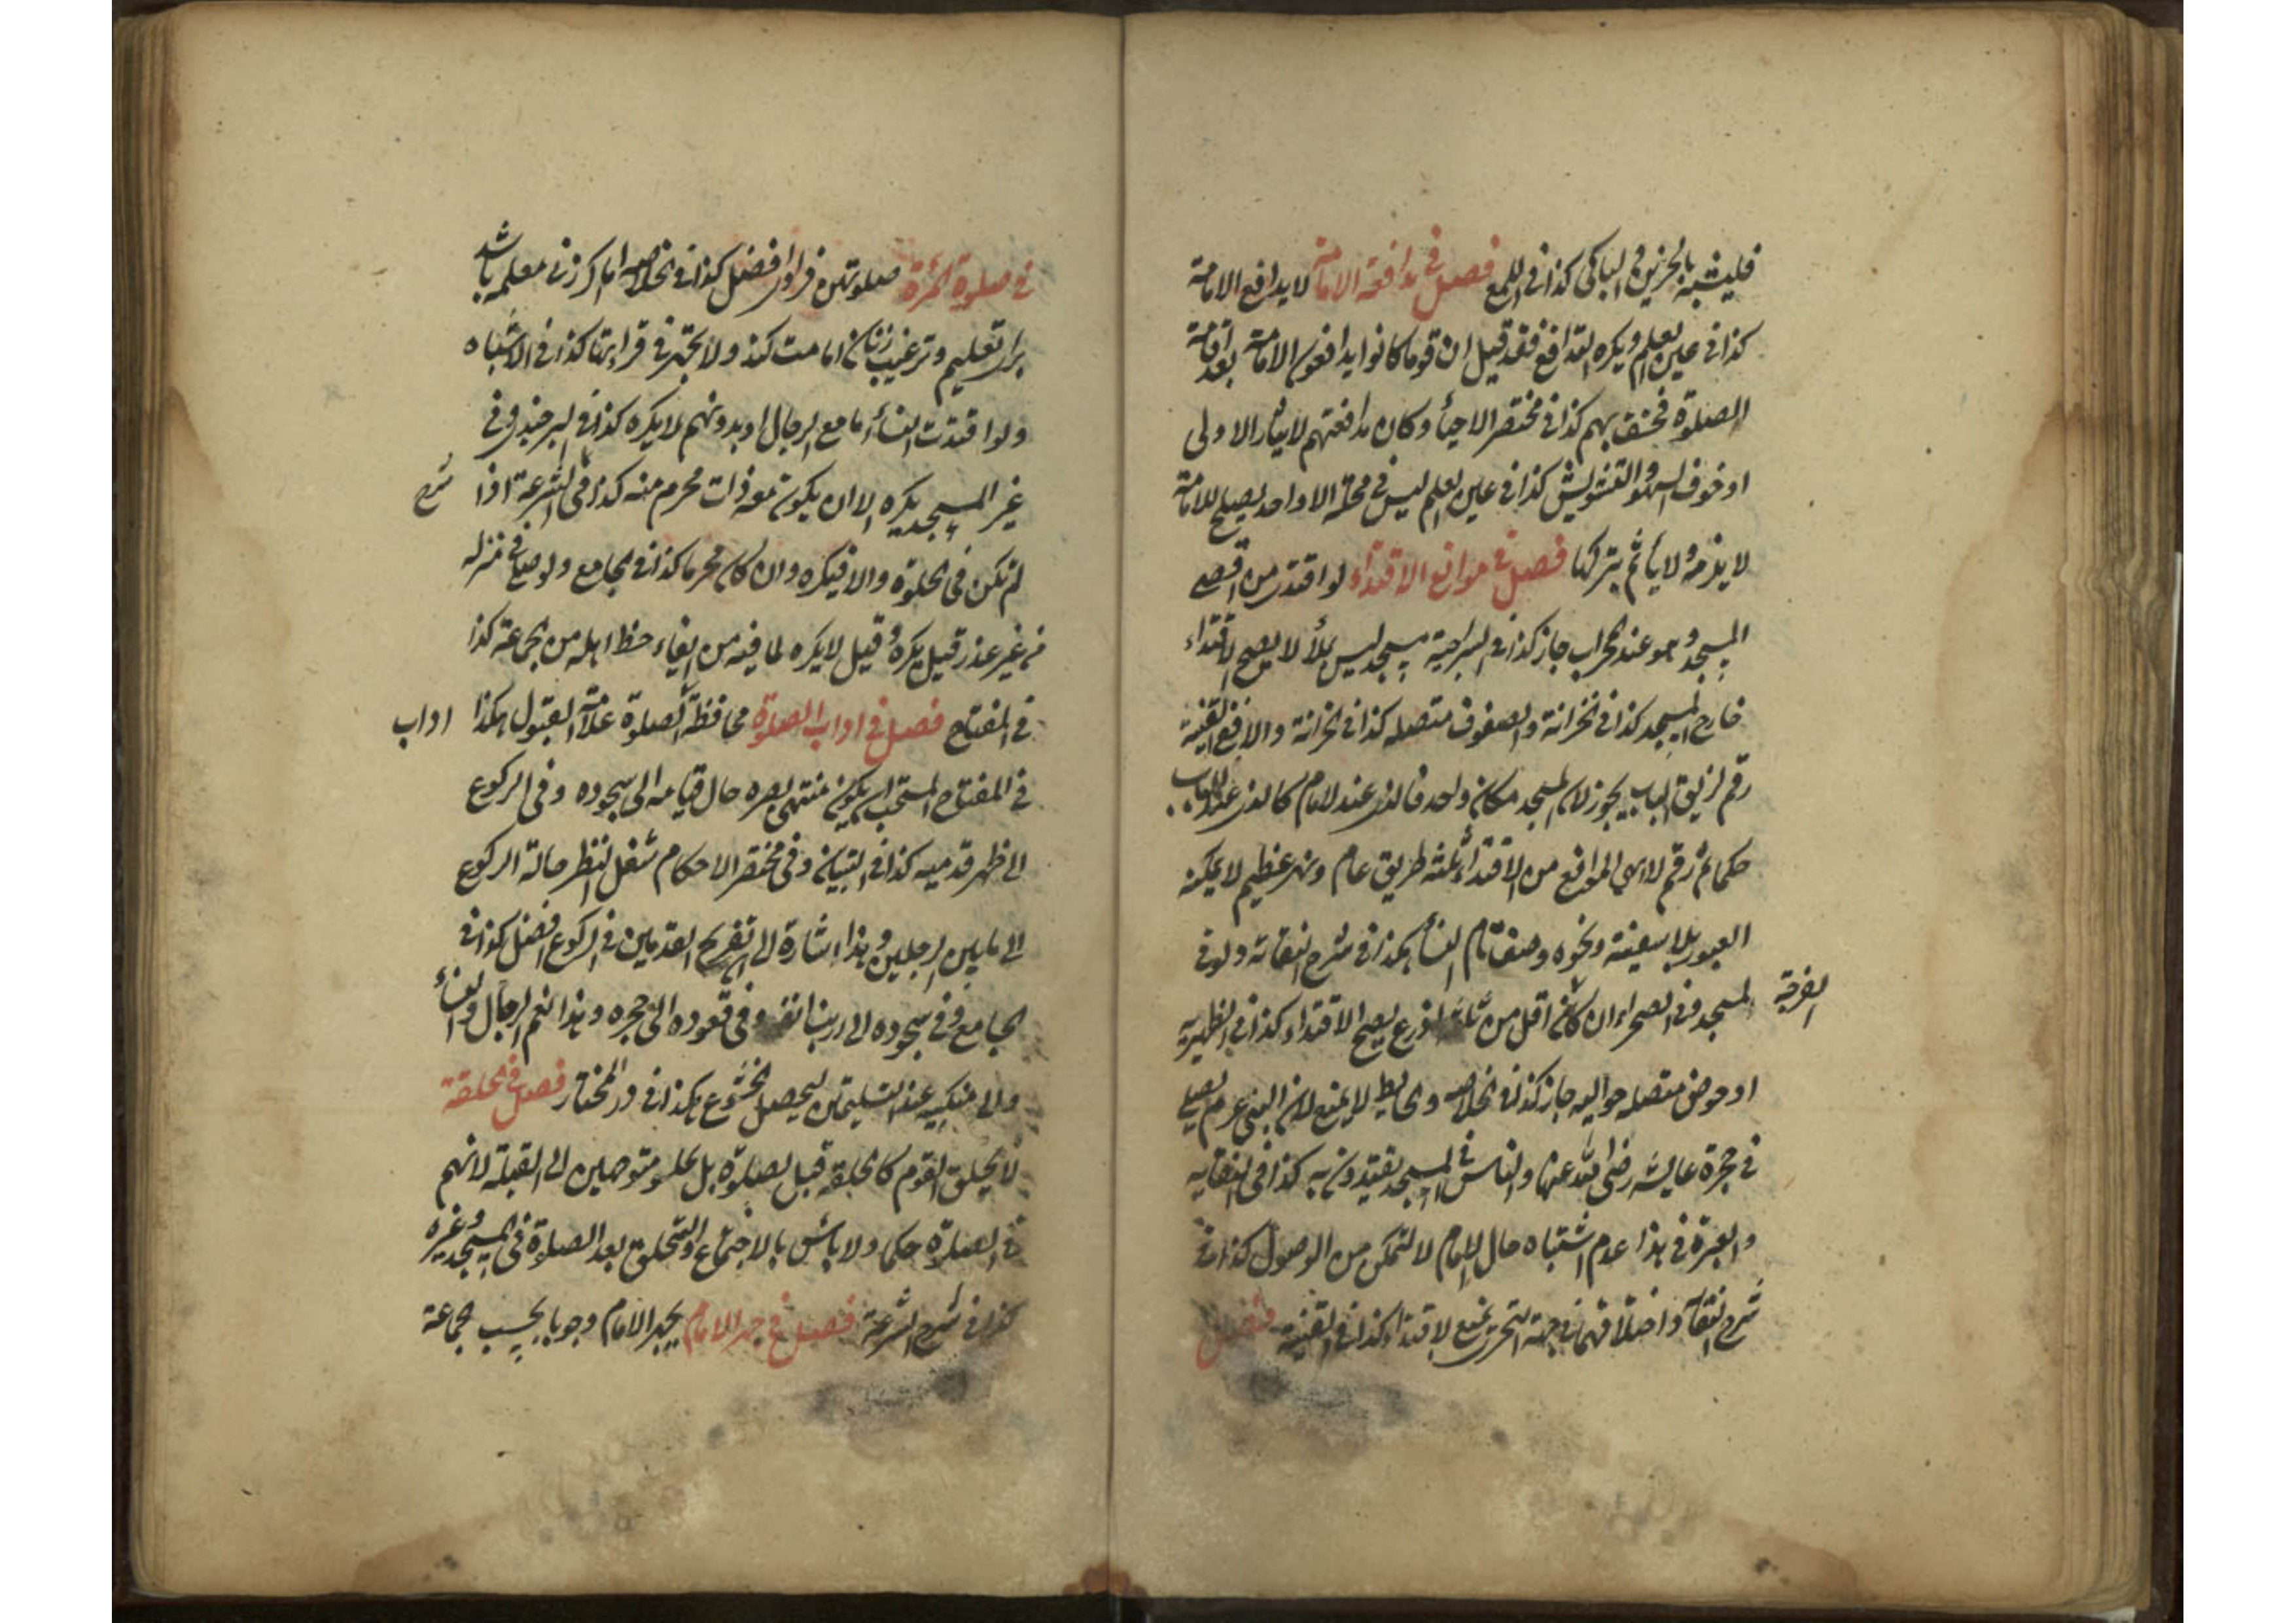 فليتشبه بالحزين الباكى كذا فى اللمع فصل فى مدافعة الامامة لا يدافع الامامة
كذا فى عين العلم ويكره التدافع فقد قيل ان قوما كانوا يدافعون الامامة بعد اقامة
الصلوة فخسف بهم كذا فى مختصر الاحيأ وكان مدافعتهم لايثار الاولى
او خوف السهو والتشويش كذا فى عين العلم ليس فى محلة الا واحد يصلح للامامة
لا يلزمه ولا يأثم بتركها فصل فى موانع الاقتداء لو اقتدى من اقصى
المسجد وهو عند المحراب جاز كذا فى السراجية مسجد ليس بملأ لا يصح الاقتداء
خارج المسجد كذا فى الخزانة والصفوف متصله كذا فى الخزانة والا ففى القنية
رقم لزيق الباب يجوز لان المسجد مكان واحد فالذى عند الامام كالذى عند الباب
حكما ثم رقم لا هى الموانع من الاقتداء ثلثة طريق عام ونهر عظيم لا يمكنه
العبور بلا سفينة ونحوه وصف تام النسأ هكذا فى شرح النقاية ولو فى
المسجد وفى الصحراء ان كان اقل من ثلثة اذرع يصح الاقتداء كذا فى الظهيرية
الفرجة
او حوض متصله حواليه جاز كذا فى الخلاصه والحايط لا يمنع لان النبى عم م يصلى
فى حجرة عايشه رضى الله عنها والناس فى المسجد يقتدون به كذا فى النقايه
والعبرة فى هذا عدم اشتباه حال الامام لا لتمكن من الوصول كذا فى
شرح النقاية واختلافهما فى جهة التحرى يمنع الاقتداء كذا فى القنية فصل
فى صلوة المرة صلوتهن فرادى افضل كذا فى الخلاصه اما اكر زنى معلمه باشد
براى تعليم وترغيب زنان امامت كند ولا تجهر فى قراءتها كذا فى الاشباه
ولو اقتدت النسأ اما مع الرجال او بدونهم لا يكره كذا فى البرجندى وفى
غير المسجد يكره الا ان يكون معه ذات محرم منه كذا فى الشرعة اذا
شرح
لم تكن فى الخلوة والا فيكره وان كان محرما كذا فى الجامع ولو صلى فى منزله
من غير عذر قيل يكره وقيل لا يكره لما فيه من ايفاء حظ اهله من الجماعة كذا
فى المفتاح فصل فى اداب الصلوة محافظة الصلوة علامة القبول هكذا
اداب
فى المفتاح المستحب ان يكون منتهى بصره حال قيامه الى سجوده وفى الركوع
الى ظهر قدميه كذا فى التبيان وفى مختصر الاحكام شغل النظر حالة الركوع
الى ما بين الرجلين وهذا اشارة الى ان تفريج القدمين فى الركوع افضل كذا فى
الجامع وفى سجوده الى ارنبة انفه وفى قعوده الى حجره وهذا النعم الرجال والنسأ
والى منكبيه عند التسليمتين ليحصل الخشوع هكذا فى در المختار فصل فى الحلقة
لا يحلق القوم كالحلقة قبل الصلوة بل يجلسو متوجهين الى القبلة لانهم
فى الصلوة حكما ولا بأس بالاجتماع والتحلق بعد الصلوة فى المسجد وغيره
كذا فى شرح الشرعة فصل فى جهر الامام يجهر الامام وجوبا بحسب جماعة